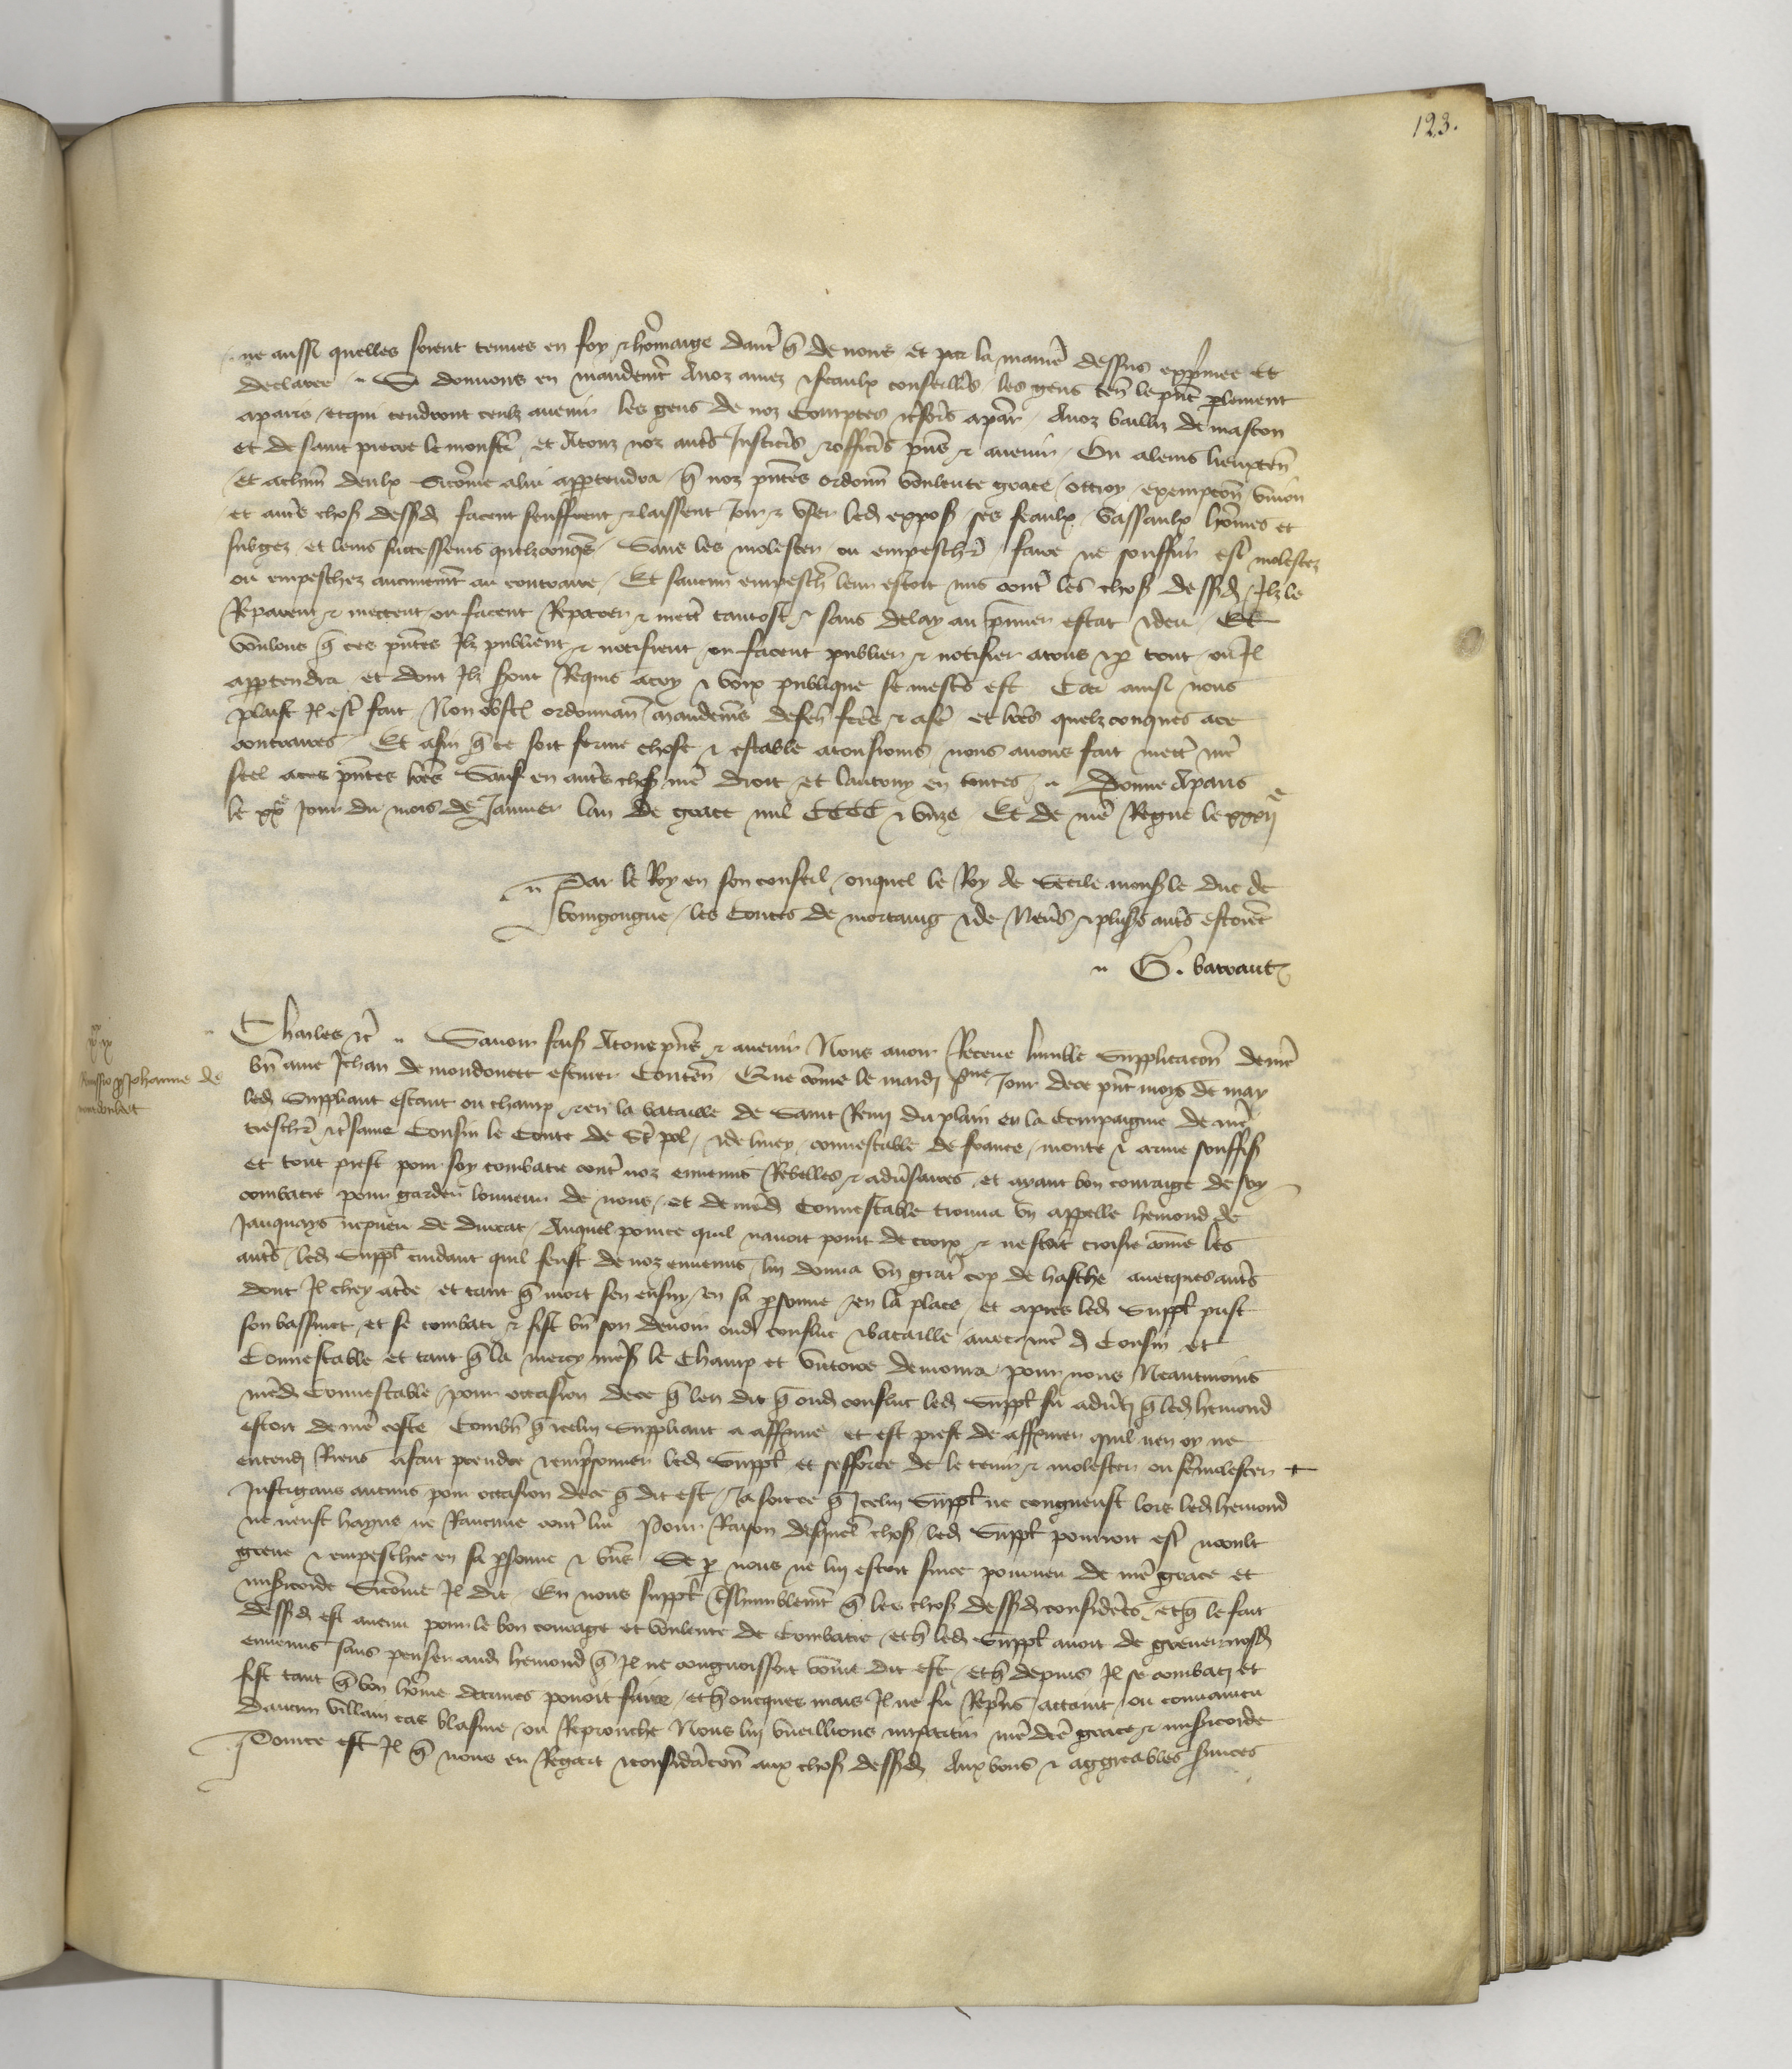 123.
ne aussi quelles soient tenues en foy & hommaige dautre que de nous et par la maniere dessus exprimee Et
declaree Si donnons en mandement A noz amez & feaulx conseillers les gens tenans le present parlement
a paris et qui tendront ceulx avenir les gens de noz Comptes & tresoriers a paris A noz bailliz de mascon
et de saint pierre le monstier et A touz noz autres Justiciers & officiers presens & avenir Ou a leurs lieuxtenans
Et a chacun deulx Sicomme a lui appartendra que noz presentes ordonnance voulente grace ottroy exempcion union
et autres choses dessusdictes facent seuffrent & laissent Joir & user ledit exposant ses feaulx vassaulx hommes et
subgez et leurs successeurs quelzconques Sans les molester ou empeschier faire ne souffrir estre molestez
ou empeschez aucunement au contraire Et saucun empeschement leur estoit mis contre les choses dessusdictes Ilz le
Reparent & mettent ou facent Reparer & mettre tantost & sans delay au premier estat & deu Et
voulons que ces presentes Ilz publient & notifient ou facent publier & notifier a tous & par tout ou Il
appartendra et dont Ilz seront Requis a cry & voix publique se mestier est Car ainsi nous
plaist Il estre fait Non obstant ordonnances mandemens defenses faictes & a faire et lettres quelzconques a ce
contraires Et afin que ce soit ferme chose & estable a tousiours nous avons fait mettre nostre
seel a ces presentes lettres Sauf en autres choses nostre droit et lautruy en toutes Donne A paris
le xxe Jour du mois de Janvier lan de grace mil CCCC & unze Et de nostre Regne le xxxije
Par le Roy en son conseil ouquel le Roy de Secile monseigneur le duc de
bourgongne les Contes de mortaing & de Nevers & plusieurs autres estoient
G. barraut
Remissio pro Johanne de
mondoulcet
Charles etc Savoir faisons A tous presens & avenir Nous avoir Receue humble Supplicacion de nostre
bien ame Jehan de mondoucet escuier Contenant Que comme le mardi Jour de ce present moys de may
ledit Suppliant estant ou champ & en la bataille de Saint Remy du plain en la Compaignie de nostre
treschier & tresame Cousin le Conte de St pol & de liney connestable de france monte & arme souffisamment
et tout prest pour soy combatre contre noz ennemis Rebelles & adversaires et ayant bon couraige de soy
combatre pour garder lonneur de nous et de nostredit Connestable trouva un appelle hemond de
Janquays nepveu de Auquel pource quil navoit point de croix & nestoit croisie comme les
autres ledit Suppliant cuidant quil feust de noz ennemis lui donna un grant cop de hasche avecques autres
dont Il chey a terre et tant que mort sen ensuy en sa personne en la place Et apres ledit Suppliant prist
son bassinet et se combati & fist bien son devoir oudit conflict & bataille avec nostredit Cousin et
Connestable et tant que la mercy nostre seigneur le Champ et victoire demoura pour nous Neantmoins
nostredit Connestable pour occasion de ce que len dit que oudit conflict ledit Suppliant fu adverti que ledit hemond
estoit de nostre coste Combien que icelui Suppliant a afferme et est prest de affermer quil nen oy ne
entendi Riens a fait prendre & emprisonner ledit Suppliant et sefforce de le tenir & molester ou faire molester
Instigans aucuns pour occasion de ce que dit est Ja soit ce que Icelui Suppliant ne congneust lors ledit hemond
ne neust hayne ne Rancune contre lui Pour Raison desquelles choses ledit Suppliant pourroit estre moult
greve & empeschie en sa personne & biens Se par nous ne lui estoit sur ce pourveu de nostre grace et
misericorde Sicomme Il dit En nous suppliant treshumblement que les choses dessusdictes considerees et que le fait
dessusdit est avenu pour le bon courage et voulente de Combatre et que ledit Suppliant avoit de grever nosdiz
ennemis sans penser audit hemond que Il ne congnoissoit comme dit est et que depuis Il se combati et
fist tant que bon homme darmes povoit faire et que oncques mais Il ne fu Repris attaint ou convaincu
daucun villain cas blasme ou Reprouche Nous lui vueillions impartir nostredicte grace & misericorde
Pource est Il que nous eu Regart & consideracion aux choses dessusdictes Aux bons & aggreables services